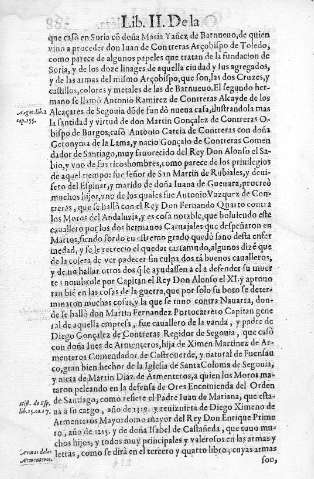 Lib. II. De la
que casò en Soria cõ doña Maria Yañez de Barnueuo, de quien
vino a proceder don Iuan de Contreras Arçobispo de Toledo,
como parece de algunos papeles que tratan de la fundacion de
Soria, y de los doze linages de aquella ciudad y sus agregados,
y de las armas del mismo Arçobispo, que son, las dos Cruzes, y
castillos, colores y metales de las de Barnueuo. El segundo her-
mano se llamò Antonio Ramirez de Contreras Alcayde de los
Alcaçares de Segouia dõde fundò nueua casa, ilustrandola mas
la santidad y virtud de don Martin Gonçalez de Contreras O-
bispo de Burgos, casò Antonio Garcia de Contreras con doña
Geronyma de la Lama, y nacio Gonçalo de Contreras Comen
dador de Santiago, muy fauorecido del Rey Don Alonso el Sa-
bio, y vno de sus ricoshombres, como parece de los priuilegios
de aquel tiempo: fue señor de San Martin de Rubiales, y deui-
sero del Espinar, y marido de doña Iuana de Gueuara, procreò
muchos hijos, vno de los quales fue Antonio Vazquez de Con-
treras, que se hallò con el Rey Don Fernando Quarto contra
los Moros del Andaluzia, y es cosa notable, que boluiendo este
cauallero por los dos hermanos Caruajales que despeñaron en
Martos, siendo sordo en estremo grado quedò sano desta enfer
medad, y se le
de la colera de ver padecer sin culpa dos tã buenos caualleros,
y de no hallar otros dos q le ayudassen a el a defender su muer
te: nombrole por Capitan el Rey Don Alonso el XI. y aprouo
tan bié en las cosas de la guerra, que por solo su boto se deter-
minaron muchas cosas, y la que se tuuo contra Nauarra, don-
de se hallò don Martin Fernandez Portocarrero Capitan gene
ral de aquella empresa, fue cauallero de la vanda, y padre de
Diego Gonçalez de Contreras Regidor de Segouia, que casò
con doña Ines de Armenteros, hija de Ximen Martinez de Ar-
menteros Comendador de Castroverde, y natural de Fuensau
co, gran bien hechor de la Iglesia de Santa Coloma de Segouia,
y nieta de Martin Diaz de Armenteros, a quien los Moros ma-
taron peleando en la defensa de Ores Encomienda del Orden
de Santiago, como refiere el Padre Iuan de Mariana, que esta-
ua a su cargo, año de 1319. y reuizñieta de Diego Ximeno de
Armenteros Mayordomo mayor del Rey Don Enrique Prime
ro, año de 1215. y de doña Isabel de Castañeda, que tuuo mu-
chos hijos, y todos muy principales y valerosos en las armas y
letras, como se dirà en el tercero y quarto libro, cuyas armas
son,